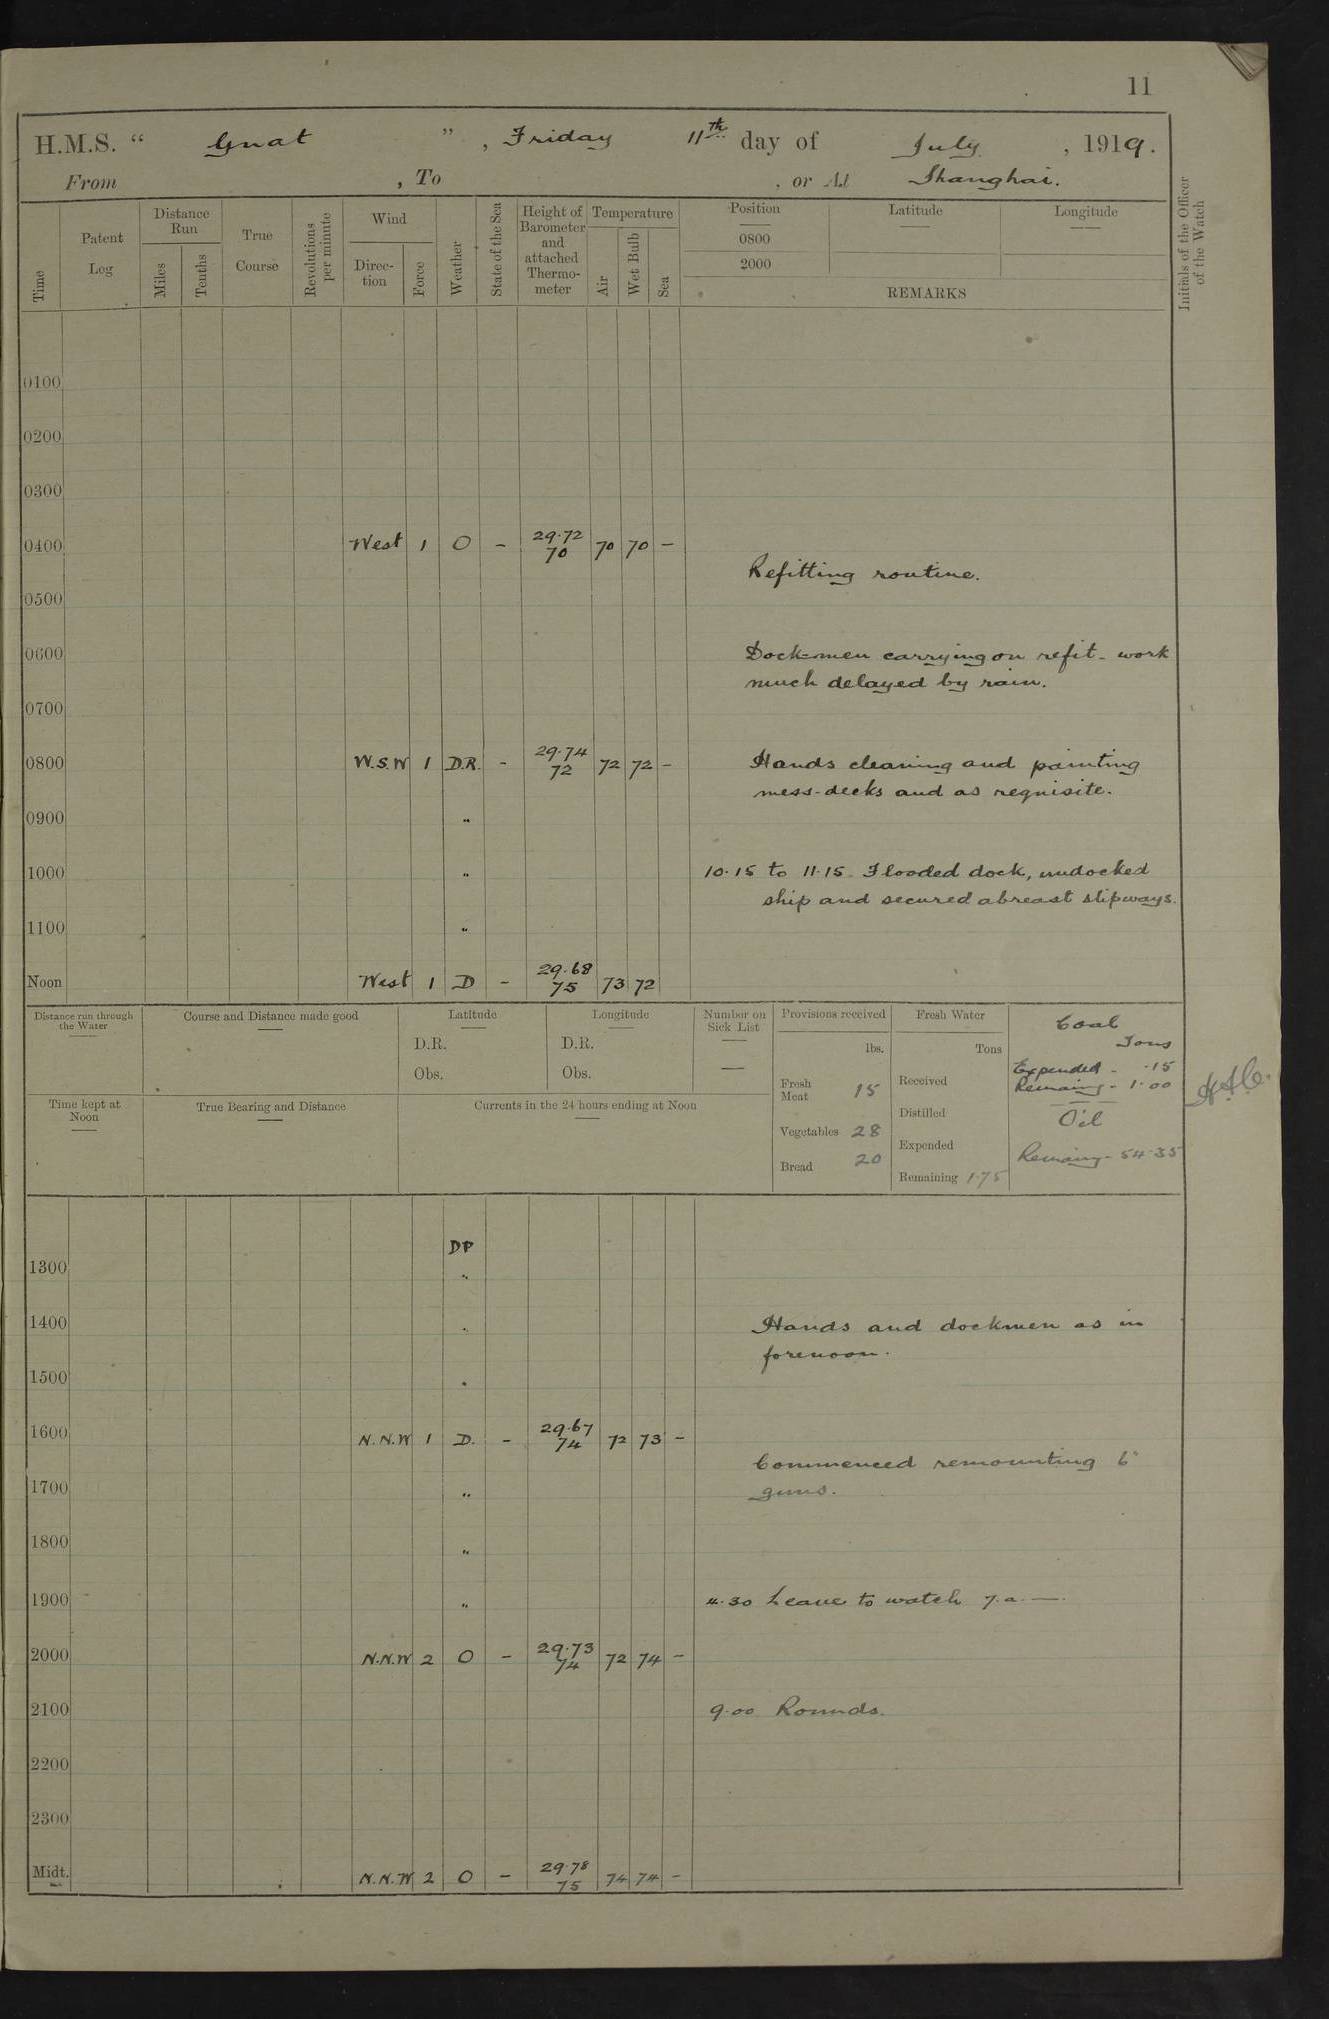 11
H.M.S. " Gnat ", Friday 11th day of July, 1919.
From , To , or At Shanghai.
Time
Patent Log
Distance Run
Miles
Tenths
True Course
Revolutions per minute
Wind
Direc-tion
Force
Weather
State of the Sea
Height of Barometer and attached Thermo-meter
Temperature
Air
Wet Bulb
Sea
Position
0800
2000
Latitude
Longitude
REMARKS
Initials of the Officer of the Watch
0100
0200
0300
0400 West 1 O - 29.72 70 70 70 -
Refitting routine.
0500
0600 Dock-men carrying on refit - work
much delayed by rain.
0700
0800 W.S.W 1 D.R. - 29.74 72 72 72 - Hands cleaning and painting
mess-decks and as requisite.
0900 "
1000 " 10.15 to 11.15 Flooded dock, undocked
ship and secured abreast slipways.
1100 "
Noon West 1 D - 29.68 75 73 72
Distance run through the Water
Course and Distance made good
Latitude
D.R.
Obs.
Longitude
D.R.
Obs.
Number on Sick List
—
Provisions received
lbs.
Fresh Meat 15
Vegetables 28
Bread 20
Fresh Water
Tons
Received
Distilled
Expended
Remaining 1.75
Coal
Tons
Expended - .15
Remaing - 1.00
Oil
Remaing - 54.35
Time kept at Noon
True Bearing and Distance
Currents in the 24 hours ending at Noon
DP
1300 "
1400 " Hands and dockmen as in
forenoon.
1500 "
1600 N.N.W 1 D. - 29.67 74 72 73 -
Commenced remounting 6"
1700 " guns.
1800 "
1900 " 4.30 Leave to watch 7.a.—
2000 N.N.W 2 O - 29.73 74 72 74 -
2100 9.00 Rounds.
2200
2300
Midt. N.N.W 2 O - 29.78 75 74 74 -